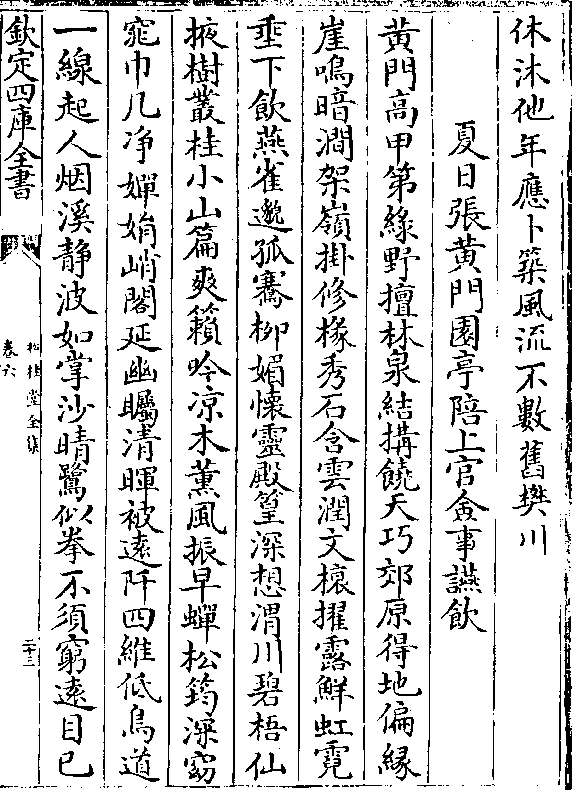 休沐他年應卜築風流不數舊樊川
夏日張黄門園亭陪上官僉事讌飲
黄門高甲第緑野擅林泉結搆饒天巧郊原得地偏縁
崖鳴暗澗架嶺掛修椽秀石含雲潤文櫰擢露鮮虹霓
垂下飲燕雀邈孤騫柳媚懐靈殿篁深想渭川碧梧仙
掖樹叢桂小山篇爽籟吟凉木薰風振早蟬松筠深窈
窕巾几净嬋娟峭閣延幽矚清暉被遠阡四維低鳥道
一線起人烟溪静波如掌沙晴鷺似拳不須窮遠目已
欽定四庫全書
松桂堂全集
卷六
二十三